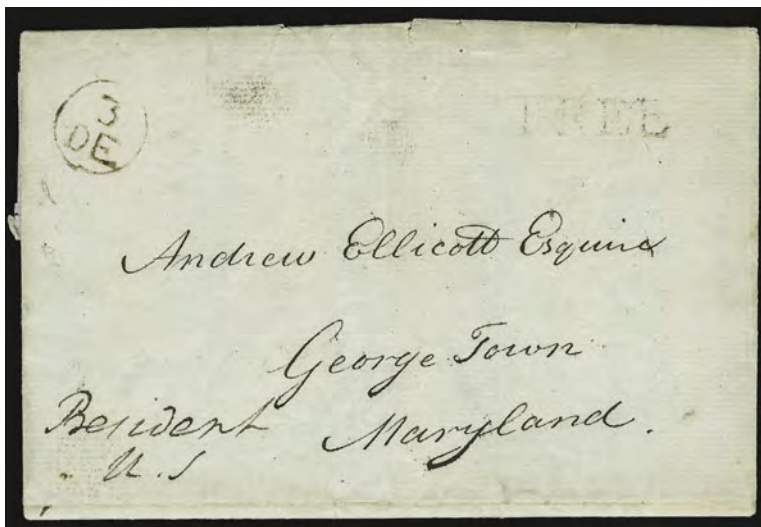 3
DE
FREE
Andrew Ellicott Esquire
George Town
Maryland.
President
U.S